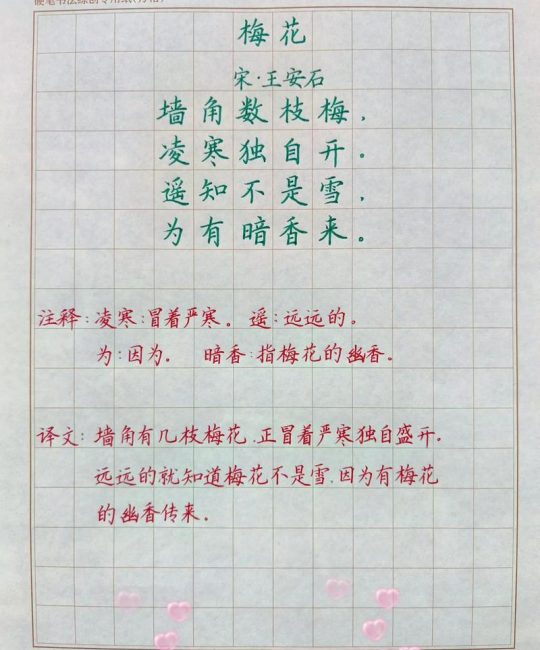 硬笔书法练创专用纸(方格)
梅花
宋·王安石
墙角数枝梅，
凌寒独自开。
遥知不是雪，
为有暗香来。
注释：凌寒：冒着严寒。 遥：远远的。
为：因为。 暗香：指梅花的幽香。
译文：墙角有几枝梅花，正冒着严寒独自盛开。
远远的就知道梅花不是雪，因为有梅花
的幽香传来。